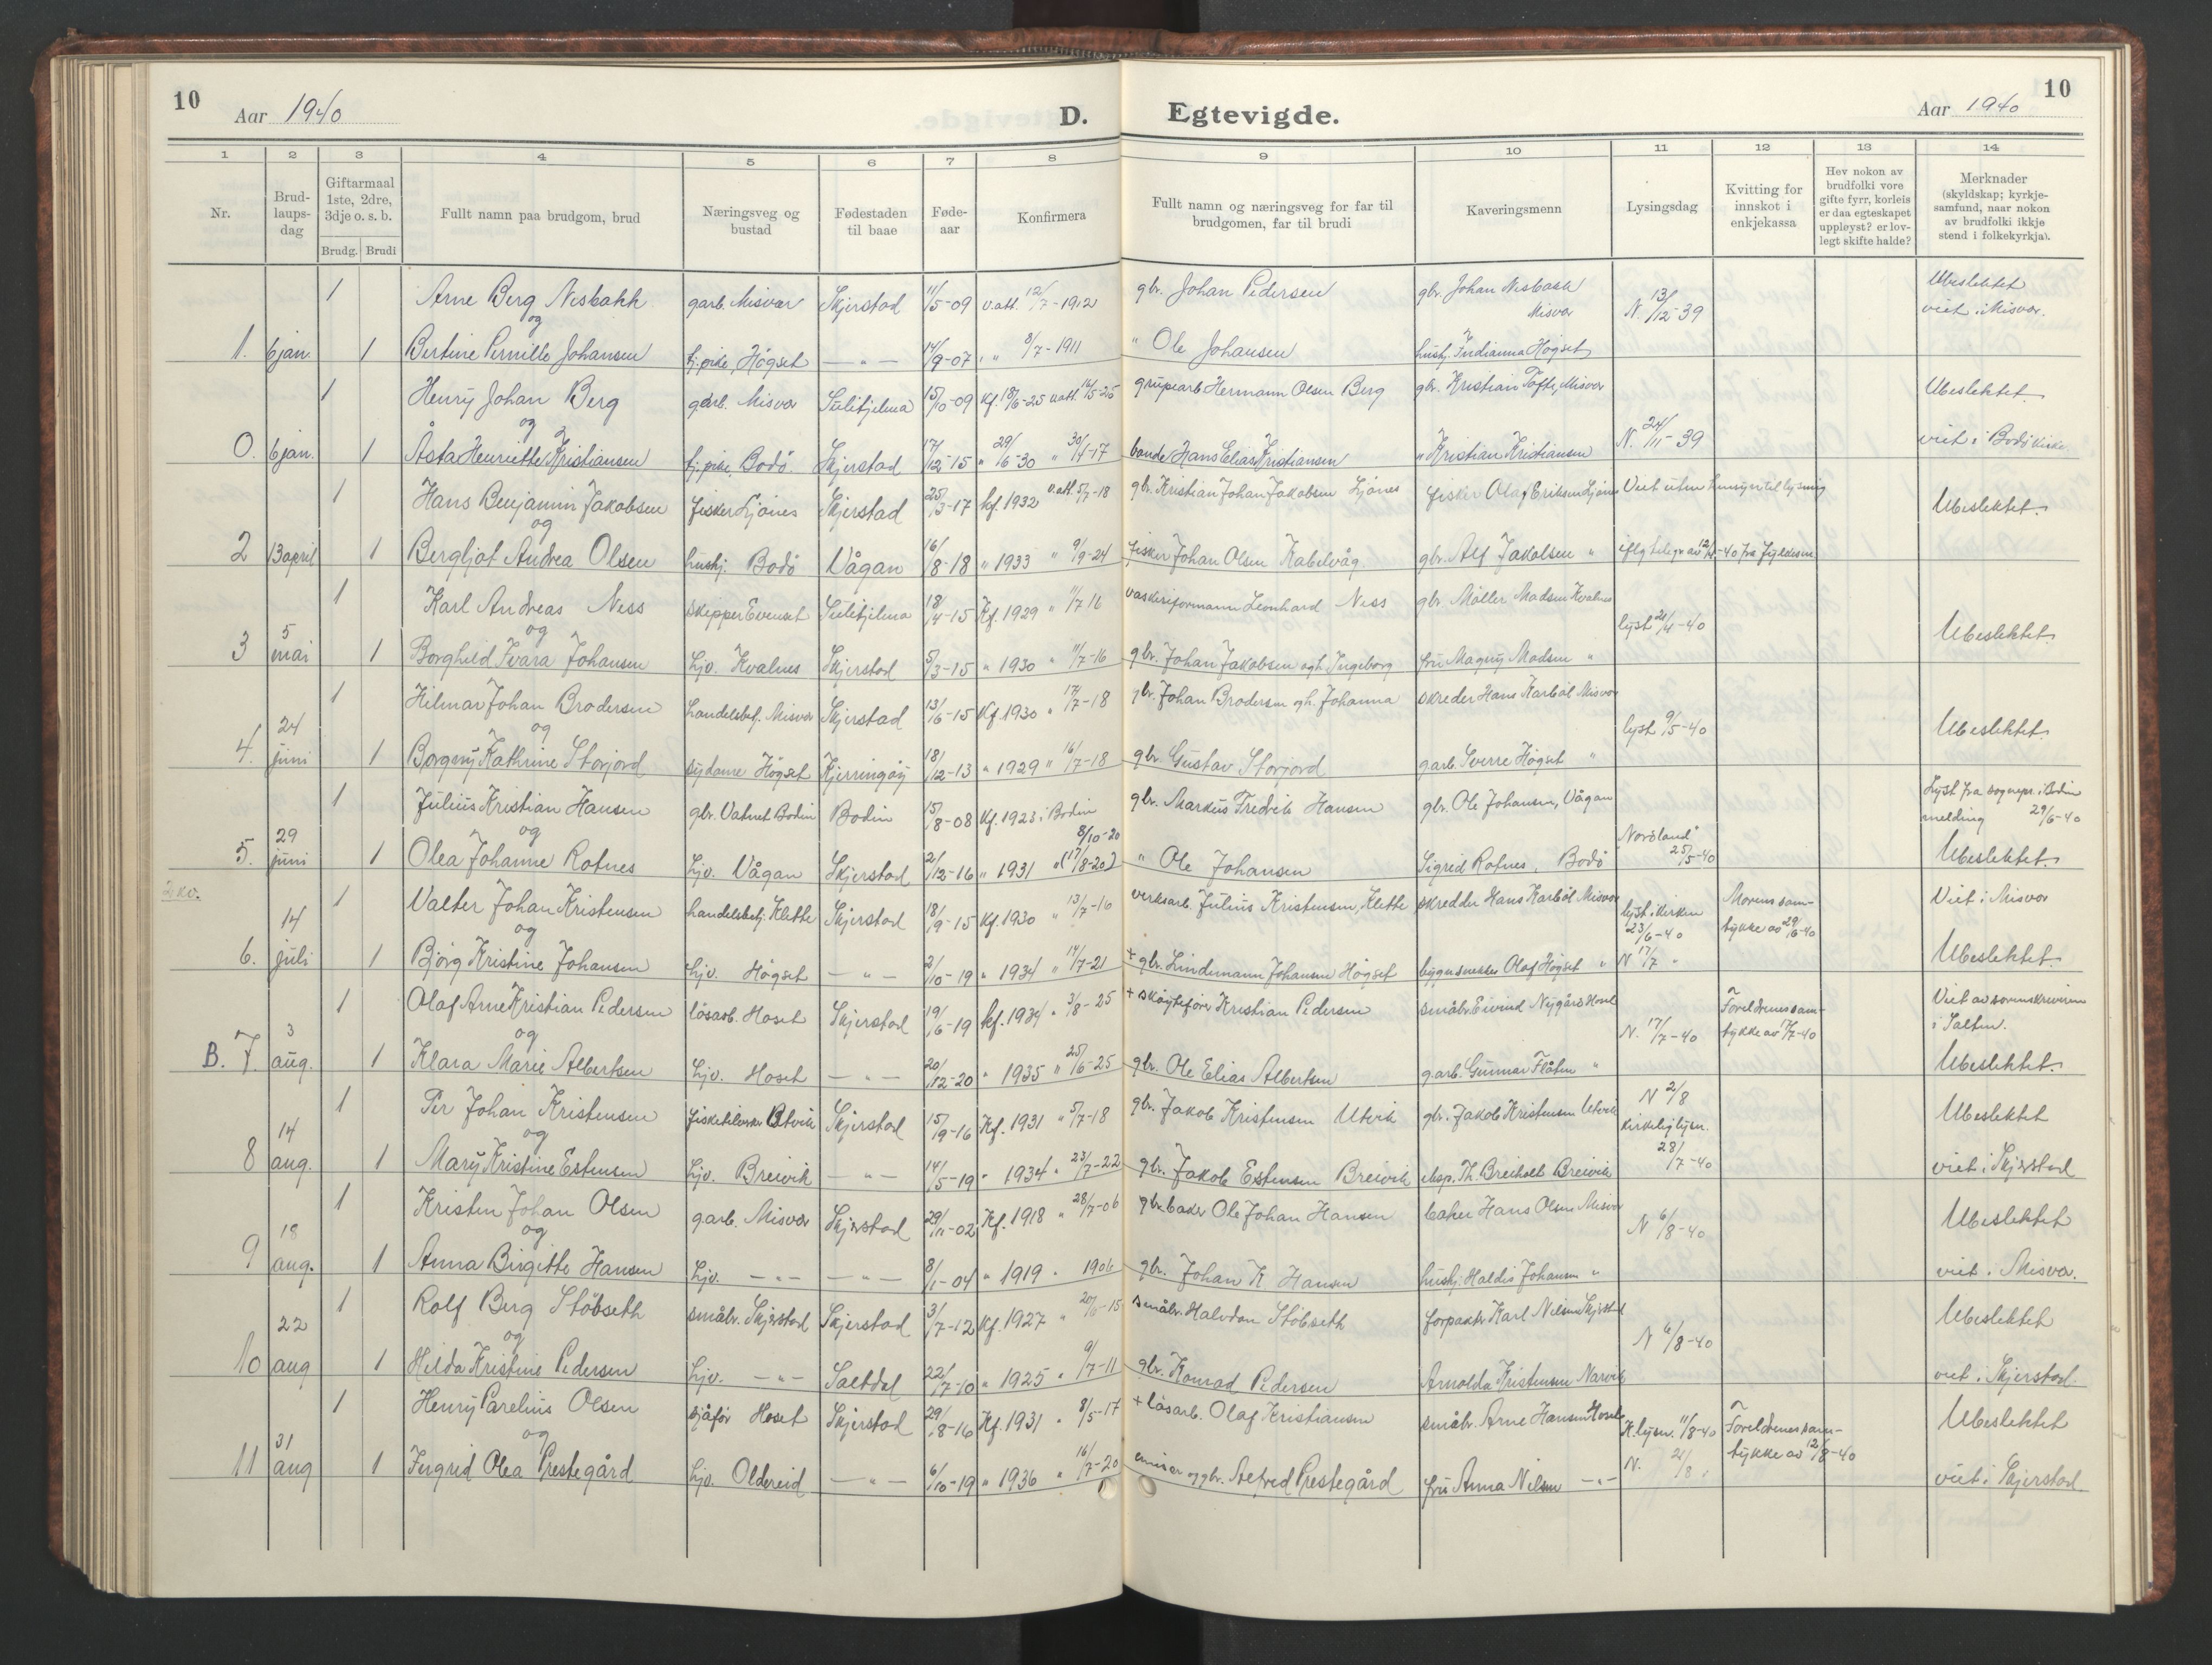 10
Aar 1940
D.
Egtevigde.
Aar 1940
10
1 2 3 4 5 6 7 8 9 10 11 12 13 14
Nr.
Brud-
laups-
dag
Giftarmaal
1ste, 2dre,
3dje o. s. b.
Brudg. Brudi
Fullt namn paa brudgom, brud
Næringsveg og
bustad
Fødestaden
til baae
Føde-
aar
Konfirmera
Fullt namn og næringsveg for far til
brudgomen, far til brudi
Kaveringsmenn
Lysingsdag
Kvitting for
innskot i
enkjekassa
Hev nokon av
brudfolki vore
gifte fyrr, korleis
er daa egteskapet
uppløyst? er lov-
legt skifte halde?
Merknader
(skyldskap; kyrkje-
samfund, naar nokon
av brudfolki ikkje
stend i folkekyrkja).
1 Arne Berg Nesbakk garb. Misvær Skjerstad 11/5-09 v.att. 12/7-1912 gbr. Johan Pedersen gbr. Johan Nesbakk Misvær N. 13/12-39 Ubeslektet viet i Misvær.
og
1. 6 jan. 1 Bertine Pernille Johansen tj.pike, Högset — " — 14/9-07 " " 8/7-1911 " Ole Johansen hushj. Indianna Högset
1 Henry Johan Berg garb. Misvær Sulitjelma 15/10-09 Kf. 18/6-25 v.att. 16/5-25 grupearb Hermann Olsen Berg gbr. Kristian Tofte, Misvær Ubeslektet
og
0. 6 jan. 1 Åsta Henriette Kristiansen tj.pike, Bodö. Skjerstad 17/12-15 " 29/6-30 " 30/4-17 bonde Hans Elias Kristiansen " Kristian Kristiansen N. 24/11-39 viet i Bodö kirke
1 Hans Benjamin Jakobsen fisker Ljönes Skjerstad 25/3-17 kf. 1932 v.att. 5/7-18 gbr. Kristian Johan Jakobsen Ljönes fisker Olaf Eriksen Ljönes Viet uten hensyn til lysning Ubeslektet.
og
2 13 april 1 Bergljot Andrea Olsen hushj. Bodö Vågan 16/8-18 " 1933 " 9/9-24 fisker Johan Olsen Kabelvåg gbr. Alf Jakobsen " iflg telegr av 12/4-40 fra fylkesm.
1 Karl Andreas Ness skipper Evenset Sulitjelma 18/4-15 Kf. 1929 " 11/7 16 vaskeriformann Leonhard Ness gbr Möller Madsen Kvalnes
og
3 5 mai 1 Borghild Ivara Johansen hjv. Kvalnes Skjerstad 5/3-15 " 1930 " 11/7-16 gbr. Johan Jakobsen og h. Ingeborg fru Magny Madsen " lyst 21/4-40 Ubeslektet.
1 Hilmar Johan Brodersen handelsbet. Misvær Skjerstad 13/6-15 Kf. 1930 " 17/7-18 gbr. Johan Brodersen og h. Johanna skreder Hans Karbøl Misvær
og
4. 24 juni 1 Borgny Kathrine Storjord sydame Högset Kjerringöy 18/12-13 " 1929 " 16/7-18 gbr. Gustav Storjord garb. Sverre Högset " lyst 9/5-40 Ubeslektet.
1 Julius Kristian Hansen gbr. Vatnet Bodin Bodin 15/8-08 Kf. 1923 i Bodin gbr. Markus Fredrik Hansen gbr. Ole Johansen, Vågan Lyst fra sognepr. i Bodin melding 29/6-40
og
5. 29 juni 1 Olea Johanne Rotnes hjv. Vågan Skjerstad 2/12-16 " 1931 " 8/10-20 (17/8-20) " Ole Johansen Sigrid Rotnes, Bodö "Nordland" 25/5-40 Ubeslektet.
1 Valter Johan Kristensen handelsbetj. Klette Skjerstad 18/9-15 Kf. 1930 " 13/7-16 verksarb. Julius Kristensen, Klette skredder Hans Karbøl Misvær lyst i kirken 23/6-40 Morens sam-tykke av 29/6-40 Viet i Misvær
og
6. 14 juli 1 Bjørg Kristine Johansen hjv. Högset — " — 2/10-19 " 1934 " 14/7-21 + gbr. Lindemann Johansen Högset byggesnekker Olaf Högset " N 17/7 " Ubeslektet.
1 Olaf Arne Kristian Pedersen lösarb. Hoset Skjerstad 19/6-19 kf. 1934 " 3/8-25 + sköyteförer Kristian Pedersen småbr. Eivind Nygård Hoset N. 17/7-40 Foreldrenes sam-tykke av 17/7-40 Viet av sorenskriveren i Salten.
og
B. 7. 3 aug. 1 Klara Marie Albertsen hjv. Hoset — " — 20/12-20 " 1935 " 25/6-25 gbr. Ole Elias Albertsen garb. Gunnar Flåten " Ubeslektet.
1 Per Johan Kristensen fisketilvirker Utvik Skjerstad 15/9-16 Kf. 1931 " 5/7-18 gbr. Jakob Kristensen Utvik gbr. Jakob Kristensen Utvik N 2/8 kirkelig lysn. 28/7-40 Ubeslektet
og
8 14 aug. 1 Mary Kristine Estensen hjv. Breivik — " — 14/5-19 " 1934 " 23/7-22 gbr. Jakob Estensen Breivik eksp. Th. Breiholt Breivik viet i Skjerstad
1 Kristen Johan Olsen garb. Misvær Skjerstad 29/11-02 Kf. 1918 " 28/7-06 gbr. baker Ole Johan Hansen baker Hans Olsen Misvær N 6/8-40 Ubeslektet
og
9 18 aug. 1 Anna Birgitte Hansen hjv. — " — — " — 8/1-04 " 1919 " 1906 gbr. Johan K. Hansen hushj. Haldis Johansen " viet i Misvær.
1 Rolf Berg Stöbseth småbr. Skjerstad Skjerstad 3/7-12 Kf. 1927 " 20/6-15 småbr. Halvdan Stöbseth forpakter Karl Nilsen Skjerstad N 6/8-40 Ubeslektet
og
10 22 aug 1 Hilda Kristine Pedersen hjv. — " — Saltdal 22/7-10 " 1925 " 9/7-11 gbr. Konrad Pedersen Arnolda Kristensen Narvik viet i Skjerstad.
1 Henry Parelius Olsen sjåför Hoset Skjerstad 29/8-16 Kf. 1931 " 8/5-17 + lösarb. Olaf Kristiansen småbr. Arne Hansen Hoset K. lysn. 11/8-40 Foreldrenes sam-tykke av 12/8-40 Ubeslektet
og
11 31 aug 1 Ingrid Olea Prestegård hjv. Oldereid — " — 6/10-19 " 1936 " 16/7-20 emisær og gbr. Alfred Prestegård fru Anna Nilsen — " — N. 21/8 " viet i Skjerstad.